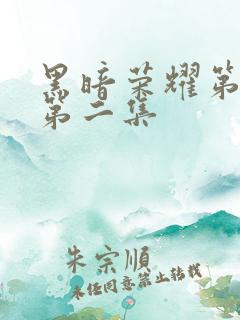 黑暗荣耀第
第二集
朱宗順
未经同意禁止转载